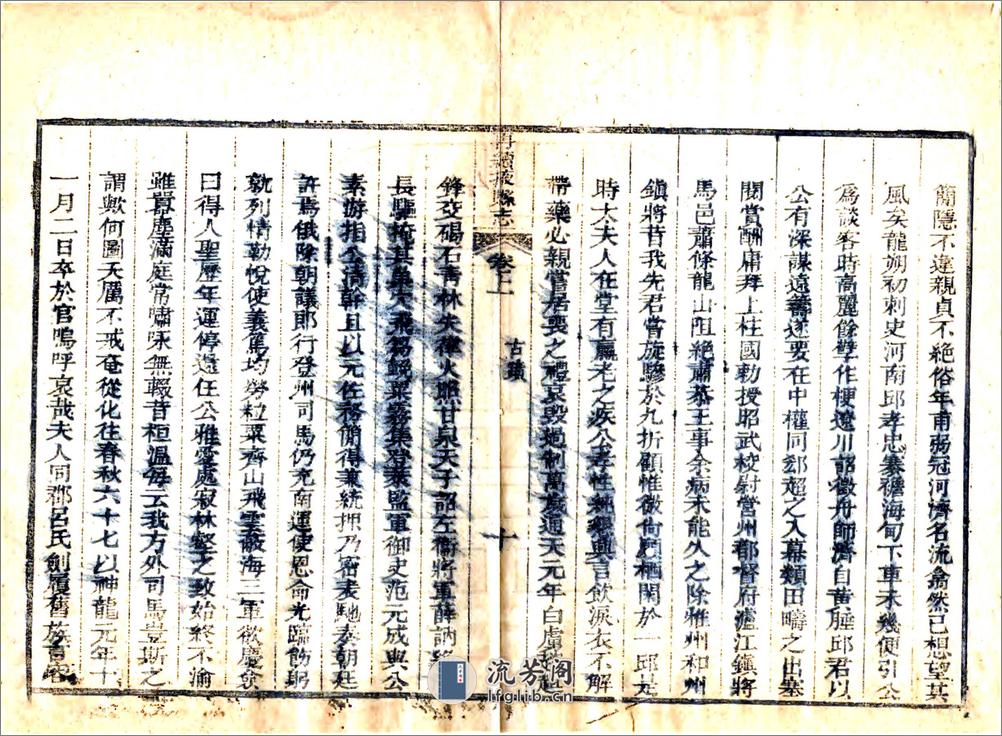 蘭隱不違親貞不絕俗年甫弱冠河濟名流翕然已想望其
風矣龍朔初刺史河南邱孝忠褰襜海甸下車未幾便引公
為談客時高麗餘孽作梗遼川詔徵舟師濟自黄腄邱君以
公有深謀遠籌遂要在中權同郄超之入幕類田疇之出塞
閱賞酬庸拜上柱國勅授昭武校尉營州都督府瀘江鎮將
馬邑蕭條龍山阻絕肅恭王事余病未能久之除雅州和川
鎮將昔我先君嘗旋驂於九折顧惟微尚請栖閑於一邱是
時太夫人在堂有羸老之疾公孝性純深興言飲淚衣不解
帶藥必親嘗居喪之禮哀毀過制萬歲通天元年白虜
再續掖縣志
卷上
古蹟
十
鋒交碣石青林失律火照甘泉天子詔左衛將軍薛訥
長驅掩其巢穴飛芻輓粟霧集登萊監軍御史范元成與公
素游指公清幹且以元佐務簡得兼統押乃密表馳奏朝廷
許焉俄除朝議郎行登州司馬仍充南運使恩命光臨飭躬
就列精勒悅使義篤均勞粒粟齊山飛雲蔽海三軍歡慶僉
曰得人聖歷年運停還任公雅愛虛寂林壑之致始終不渝
雖囂塵滿庭常嘯咏無輟昔桓溫每云我方外司馬豈斯之
謂歟何圖天厲不戒奄從化往春秋六十七以神龍元年十
一月二日卒於官嗚呼哀哉夫人同郡呂氏劍履舊族
流芳阁
lfglib.cn